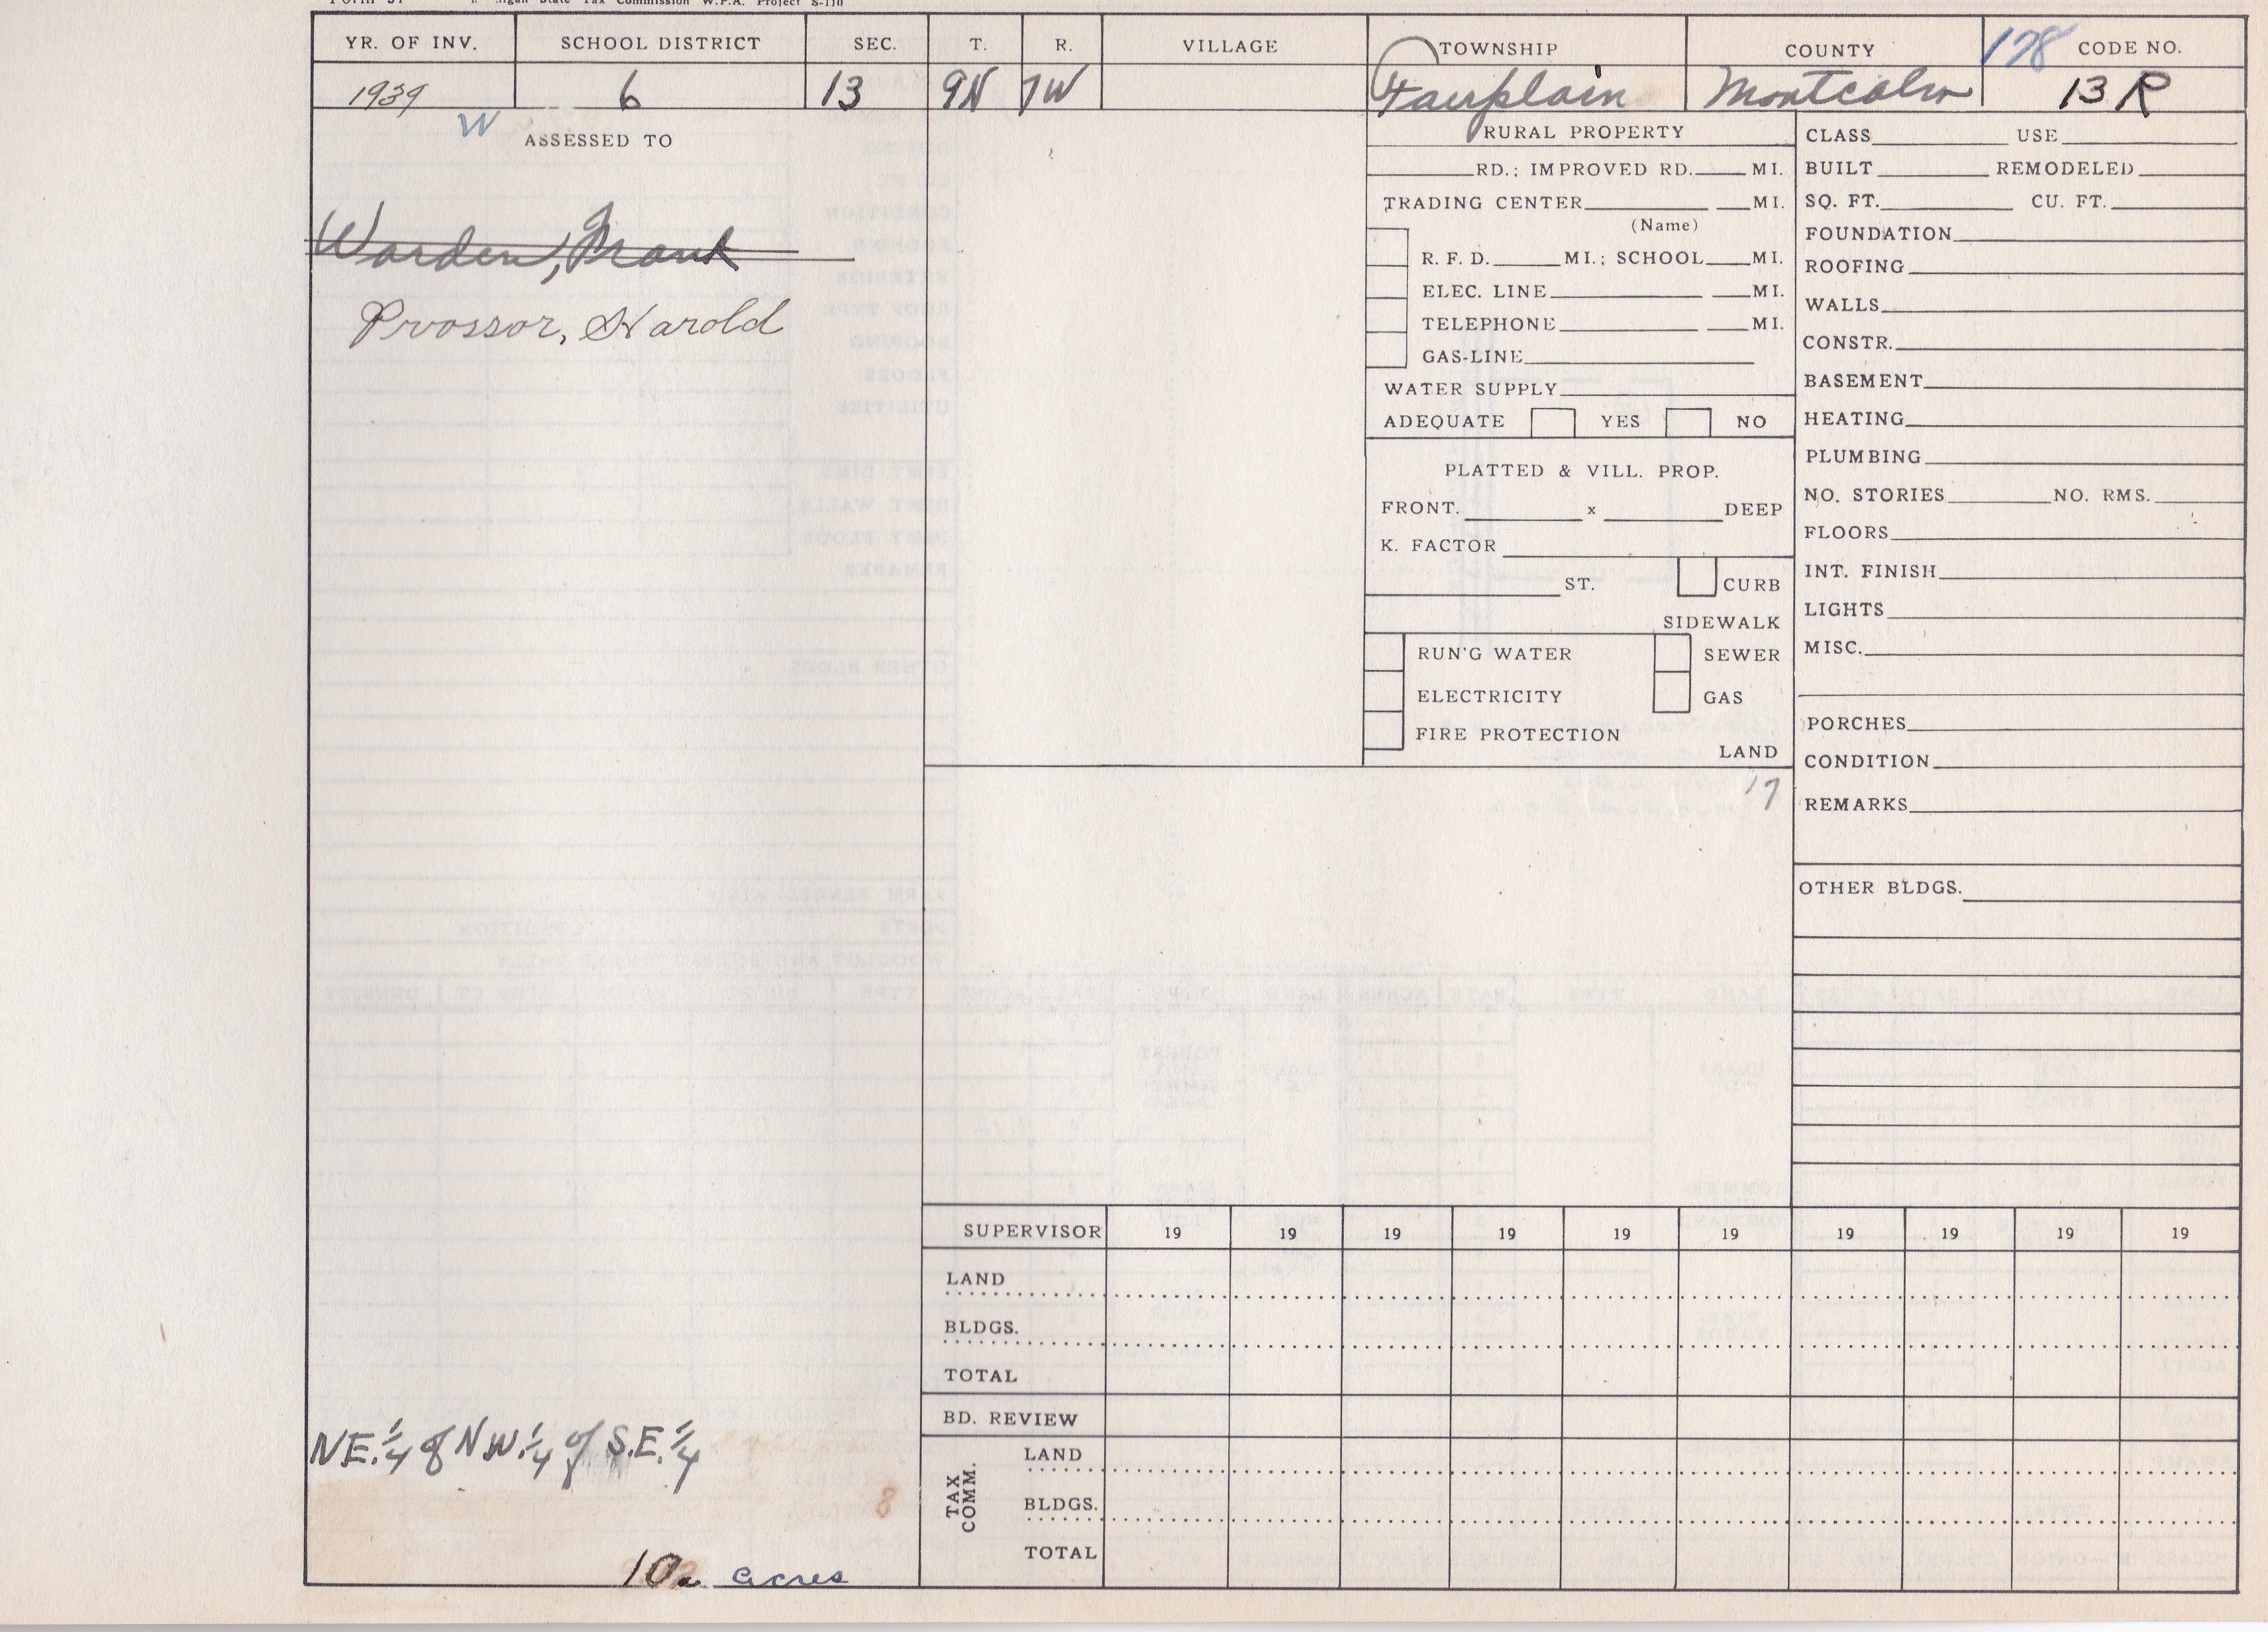 State Tax Commission W.P.A. Project S-110
YR. OF INV. SCHOOL DISTRICT SEC. T. R. VILLAGE TOWNSHIP COUNTY 178 CODE NO.
1939 6 13 9N 7W Fairplain Montcalm 13 R
W
ASSESSED TO
Warden, Frank
Prossor, Harold
NE.1/4 of NW.1/4 of S.E.1/4
8
10. acres
RURAL PROPERTY
RD.; IMPROVED RD. MI.
TRADING CENTER MI.
(Name)
R. F. D. MI.; SCHOOL MI.
ELEC. LINE MI.
TELEPHONE MI.
GAS-LINE
WATER SUPPLY
ADEQUATE YES NO
PLATTED & VILL. PROP.
FRONT. x DEEP
K. FACTOR
ST. CURB
SIDEWALK
RUN'G WATER SEWER
ELECTRICITY GAS
FIRE PROTECTION
LAND
17
CLASS USE
BUILT REMODELED
SQ. FT. CU. FT.
FOUNDATION
ROOFING
WALLS
CONSTR.
BASEMENT
HEATING
PLUMBING
NO. STORIES NO. RMS.
FLOORS
INT. FINISH
LIGHTS
MISC.
PORCHES
CONDITION
REMARKS
OTHER BLDGS.
SUPERVISOR 19 19 19 19 19 19 19 19 19 19
LAND
BLDGS.
TOTAL
BD. REVIEW
TAX COMM.
LAND
BLDGS.
TOTAL